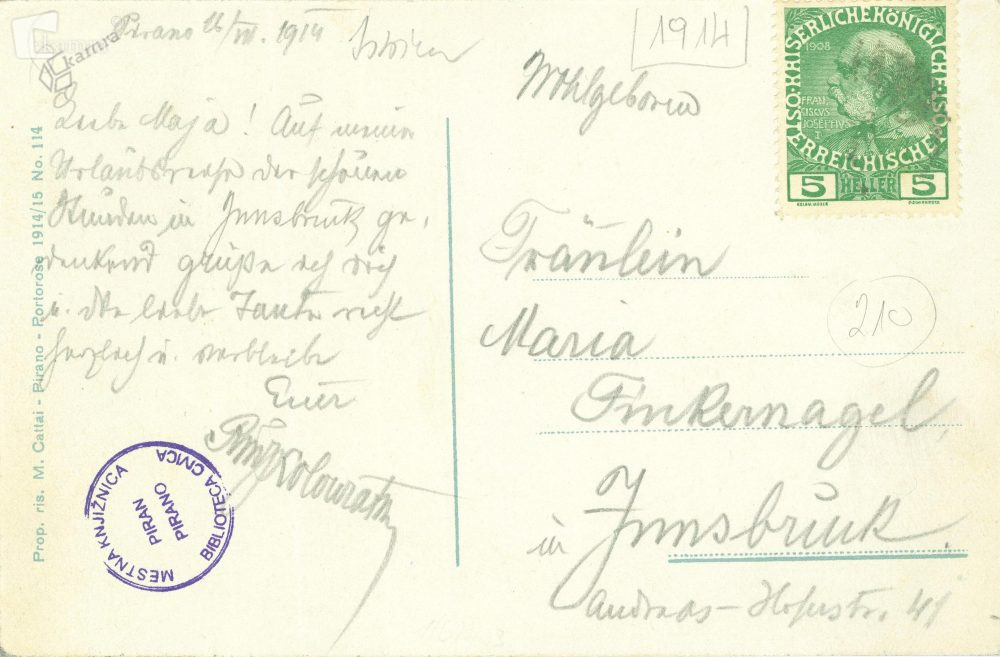 Pirano 26/VII. 1914
[1914]
kamra
Liebe Maja! Auf meiner
Urlaubsreise der schönen
Stunden in Innsbruck ge-
denkend grüße ich dich
u. die liebe Tante recht
herzlich u. verbleibe
Euer
Kolowrath
Wohlgeboren
Fräulein
Maria
Finkernagel,
in Innsbruck.
Andreas-Hoferstr. 41
210
KAISERLICHE KÖNIGLICHE ÖSTERREICHISCHE POST
1908
FRANCISCUS JOSEPHUS I
5 HELLER 5
MESTNA KNJIŽNICA
PIRAN
PIRANO
BIBLIOTECA CIVICA
Prop. ris. M. Cattai - Pirano - Portorose 1914/15 No. 114